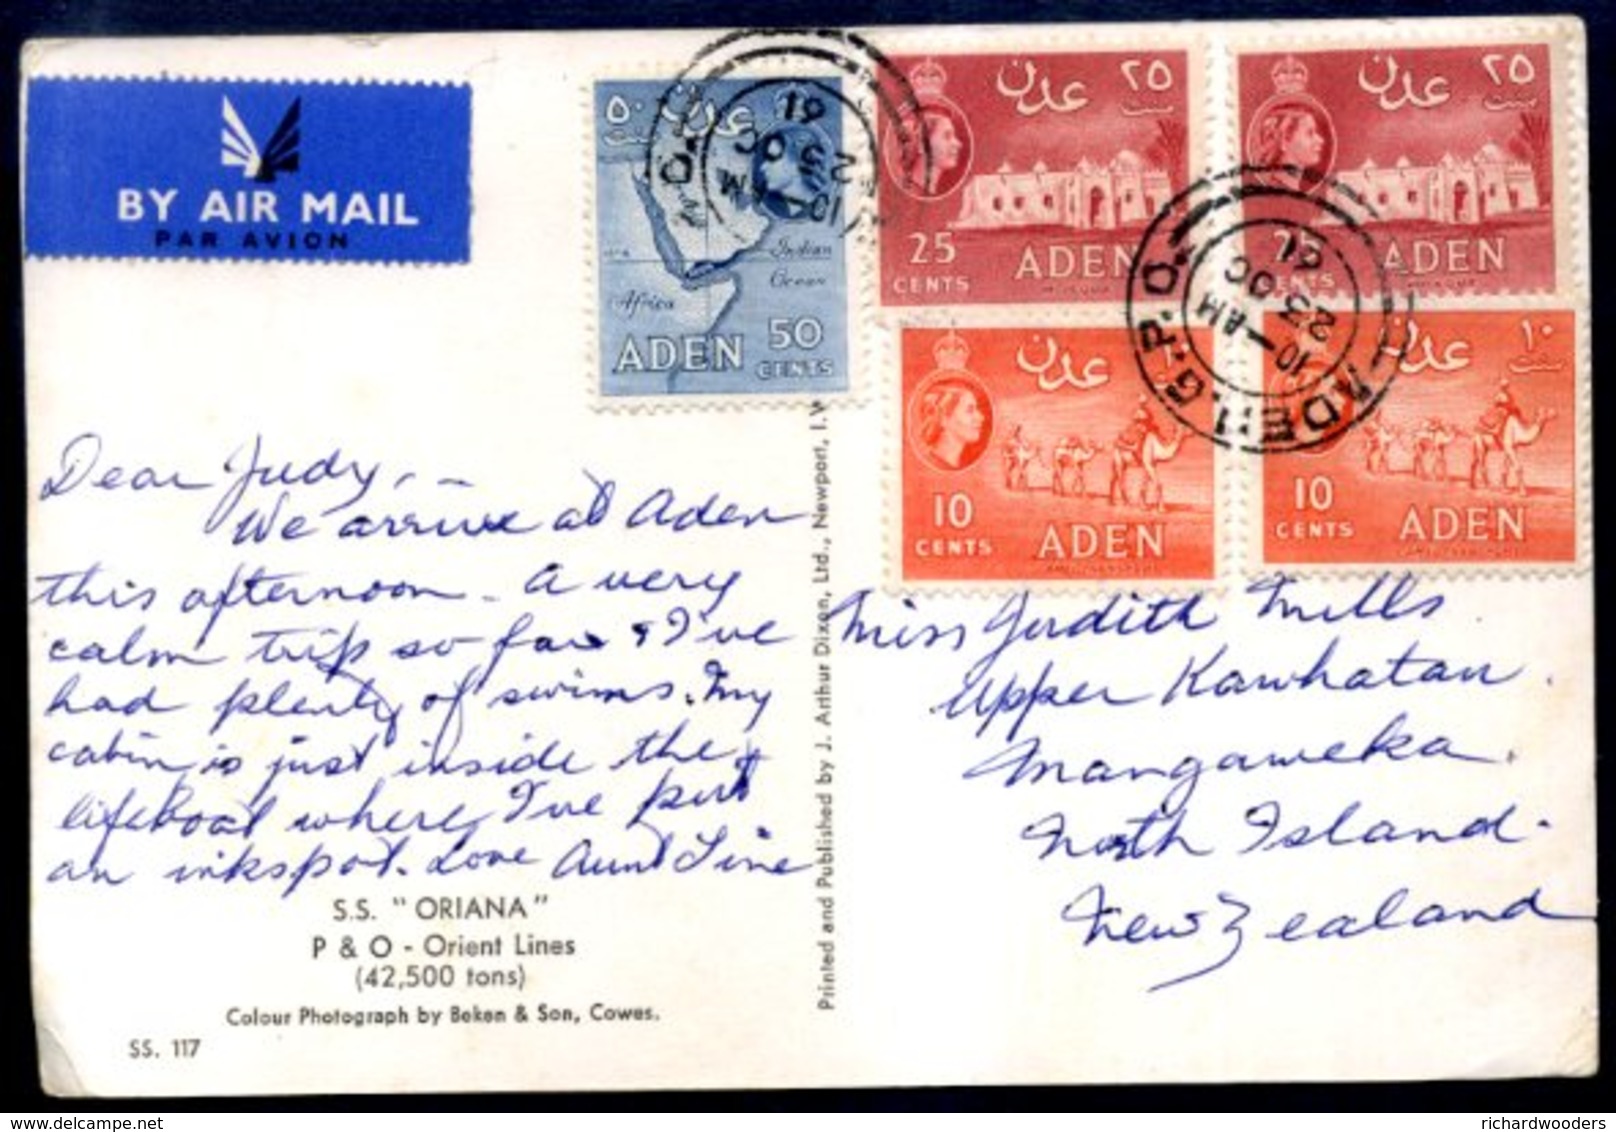 BY AIR MAIL
PAR AVION
٥٠ عدن
سنت
Indian
Ocean
Africa
ADEN 50
CENTS
عدن ٢٥
سنت
25
CENTS ADEN
عدن ٢٥
سنت
25
CENTS ADEN
عدن
10
CENTS ADEN
عدن ١٠
سنت
10
CENTS ADEN
10-AM
23 OC
61
ADEN G.P.O.
10-AM
23 OC
61
Dear Judy, -
We arrive at Aden
this afternoon - A very
calm trip so far & I've
had plenty of swims. My
cabin is just inside the
lifeboat where I've put
an inkspot. Love Aunt Line
S.S. "ORIANA"
P & O - Orient Lines
(42,500 tons)
Colour Photograph by Beken & Son, Cowes.
SS. 117
Printed and Published by J. Arthur Dixon, Ltd., Newport, I.W
Miss Judith Mills
Upper Kawhatau.
Mangaweka.
North Island.
New Zealand
richardwooders